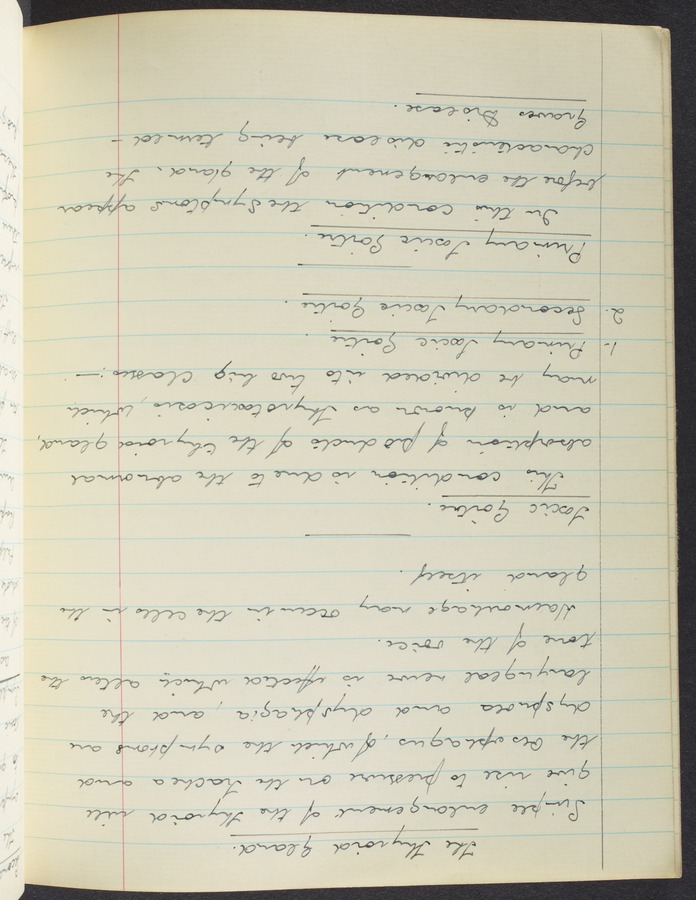 The Thyroid Gland.
Simple enlargement of the thyroid will
give rise to pressure on the trachea and
the Oesophagus, of which the symptoms are
dyspnoea and dysphagia, and the
laryngeal nerve is effected which alters the
tone of the voice.
Haemorrhage may occur in the cells in the
gland itself.
Toxic Goitre.
This condition is due to the abnormal
absorption of products of the thyroid gland,
and is known as Thyrotoxicosis, which
may be divided into two big Classes:-
1- Primary Toxic Goitre.
2. Secondary Toxic Goitre.
Primary Toxic Goitre.
In this condition the symptoms appear
before the enlargement of the gland. The
characteristic disease being termed -
Graves Disease.